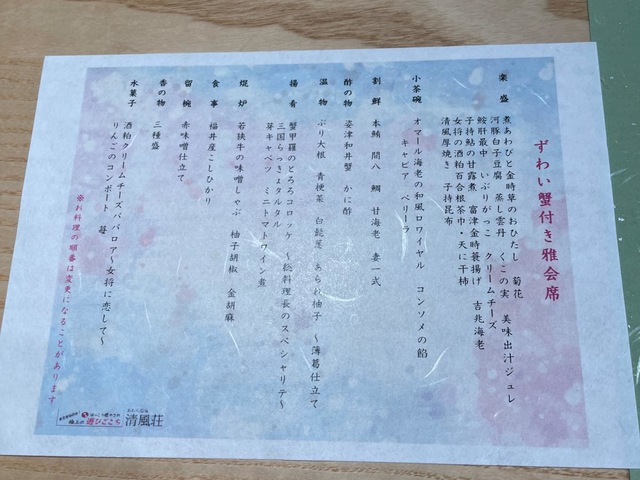 ずわい蟹付き雅会席
楽盛 煮あわびと金時草のおひたし 菊花
河豚白子豆腐 蒸し雲丹 くこの実 美味出汁ジュレ
鮟肝最中 いぶりがっこ クリームチーズ
子持鮎の甘露煮 富津金時蓑揚げ 吉兆海老
女将の酒粕百合根茶巾・天に干柿
清風厚焼き 子持昆布
小茶碗 オマール海老の和風ロワイヤル コンソメの餡
キャビア ペリーラ
割鮮 本鮪 間八 鯛 甘海老 妻一式
酢の物 姿津和井蟹 かに酢
温物 ぶり大根 青梗菜 白髭葱 あられ柚子 〜薄葛仕立て
揚肴 蟹甲羅のとろろコロッケ 〜総料理長のスペシャリテ〜
三国らっきょタルタル
芽キャベツ・ミニトマトワイン煮
焜炉 若狭牛の味噌しゃぶ 柚子胡椒 金胡麻
食事 福井産こしひかり
留椀 赤味噌仕立て
香の物 三種盛
水菓子 酒粕クリームチーズババロア〜女将に恋して〜
りんごのコンポート 苺
※お料理の順番は変更になることがあります
ほっこり癒やされ
極上の遊びごこち
あわら温泉
清風荘